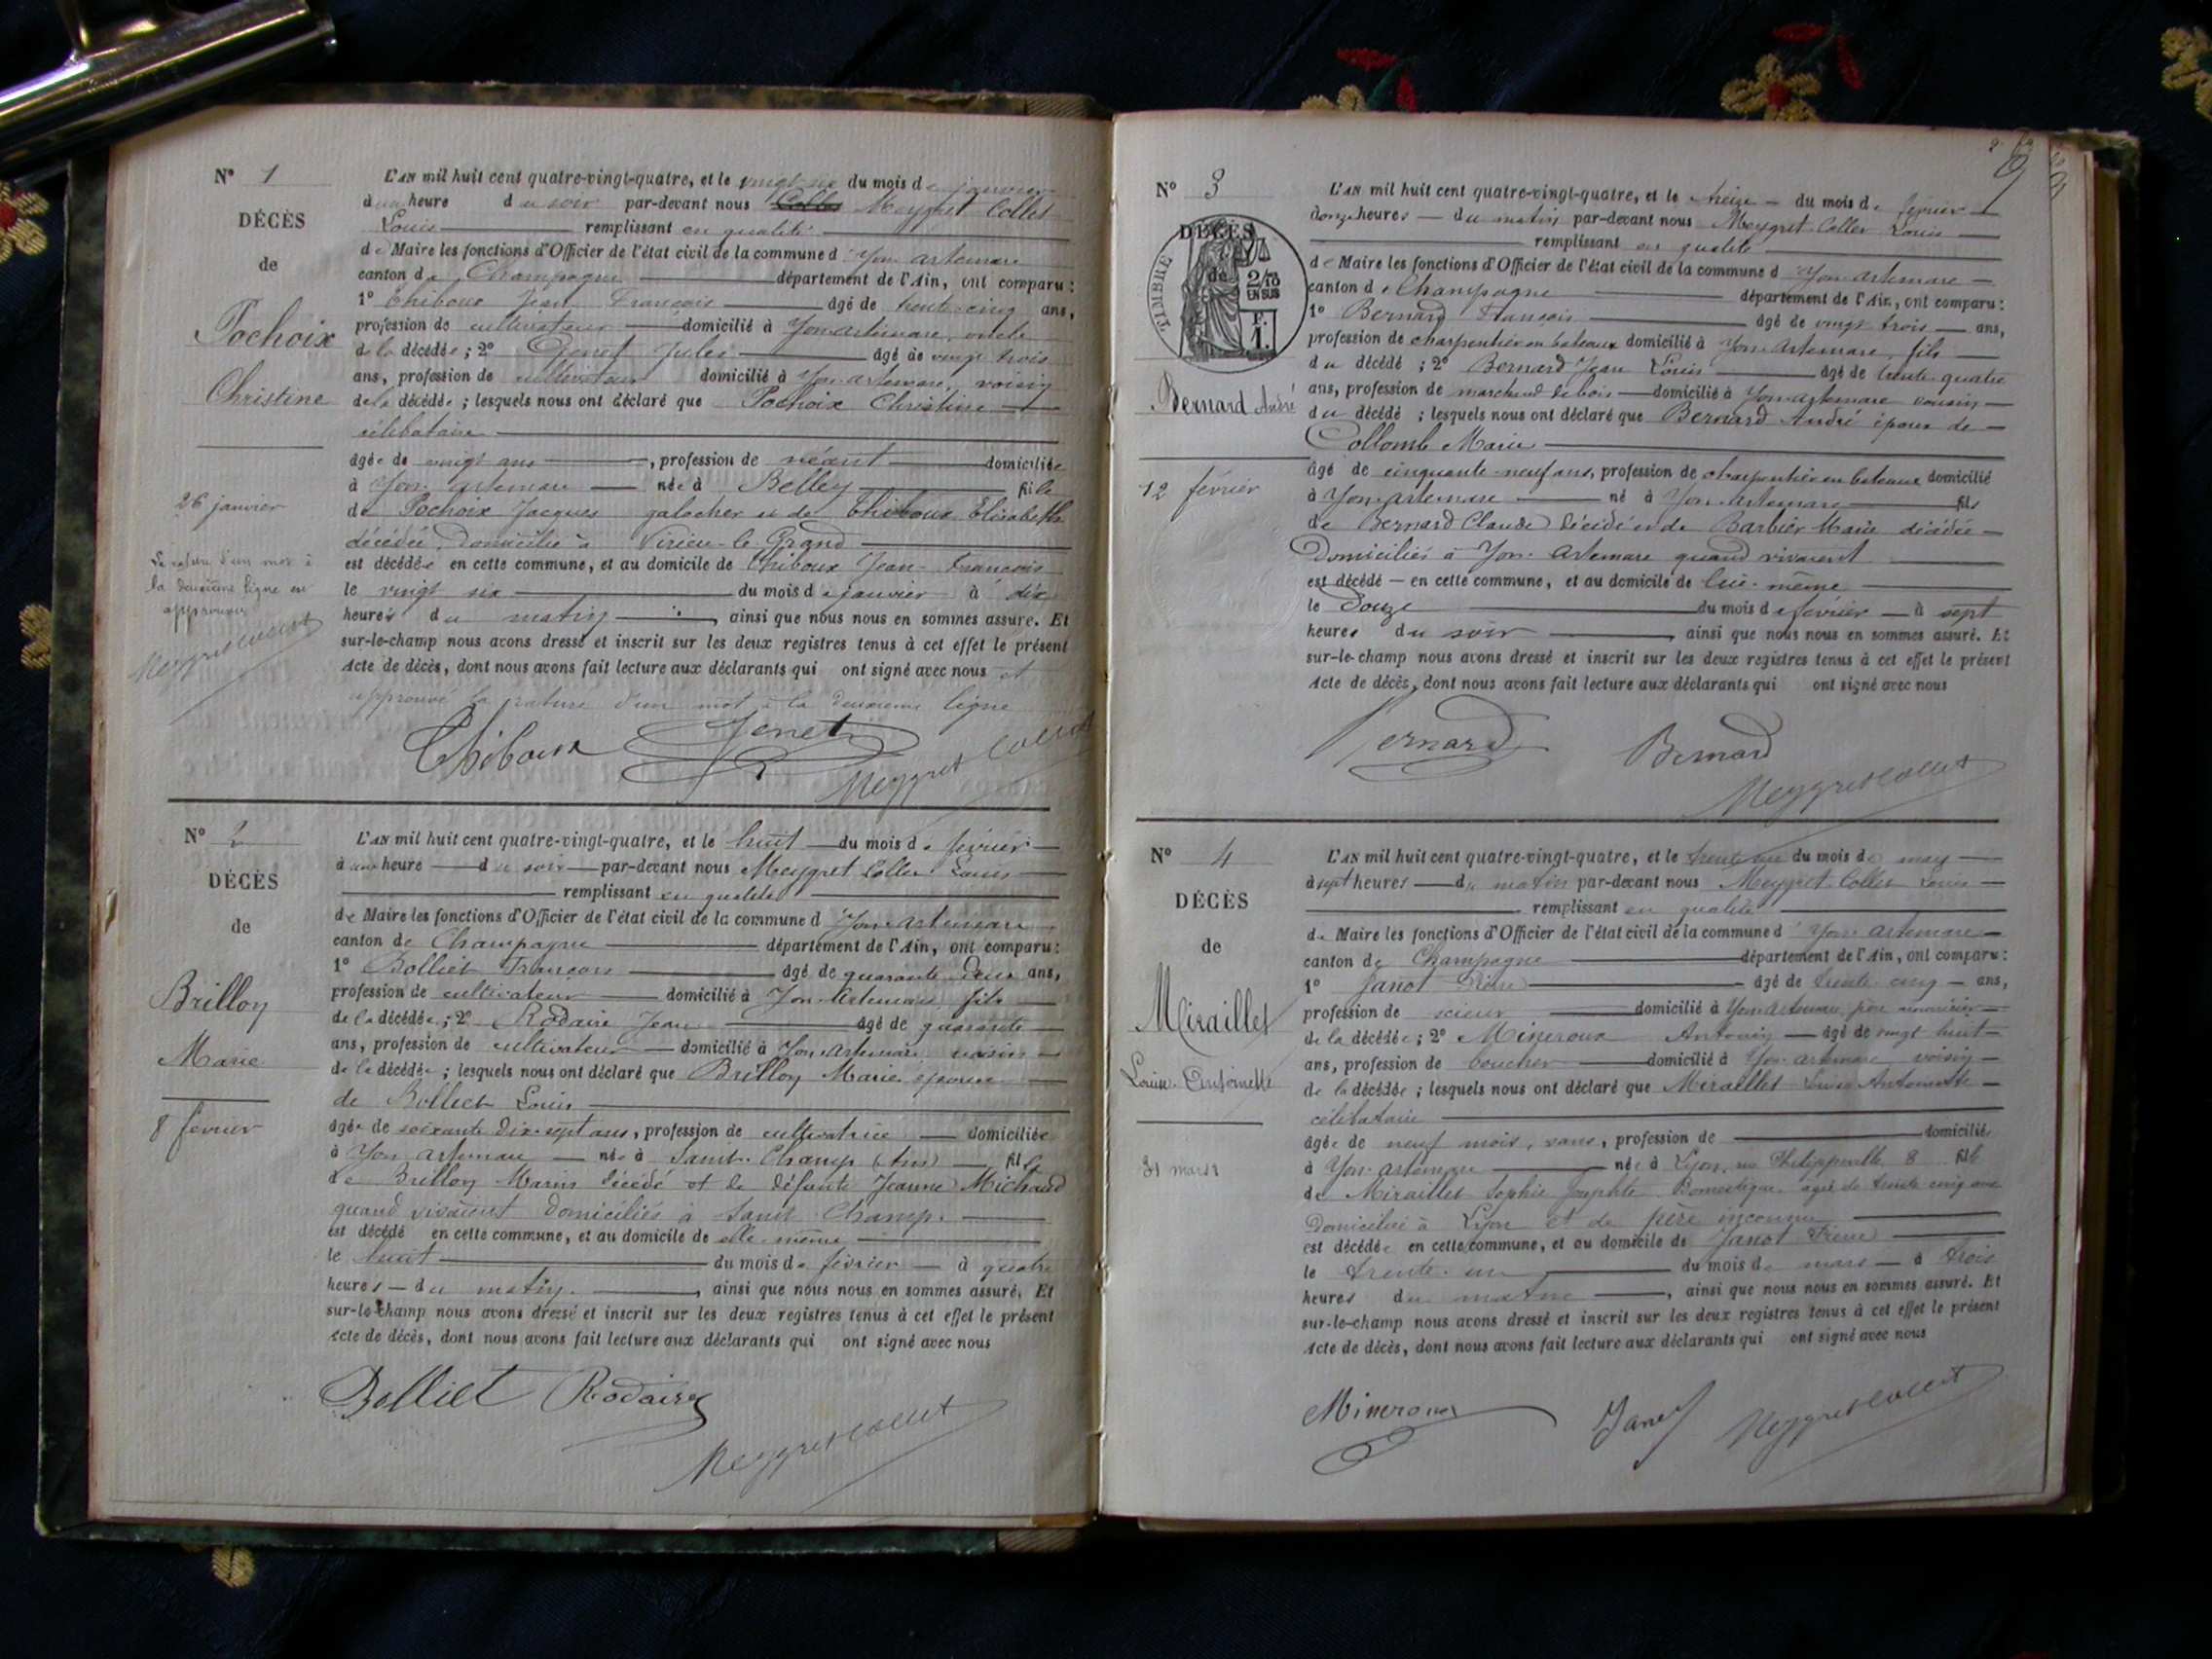 N° 1
DÉCÈS
de
Pochoix
Christine
26 janvier
La rature d'un mot à
la deuxième ligne est
approuvée
Meygret Collet
L'AN mil huit cent quatre-vingt-quatre, et le vingt six du mois de janvier
à une heure du soir par-devant nous Meygret Collet
Louis remplissant en qualité
de Maire les fonctions d'Officier de l'état civil de la commune d'Yon artemare
canton de Champagne département de l'Ain, ont comparu :
1° Thiboux Jean François âgé de trente cinq ans,
profession de cultivateur domicilié à Yon artemare, oncle
de la décédée ; 2° Genet Jules âgé de vingt trois
ans, profession de cultivateur domicilié à Yon artemare, voisin
de la décédée ; lesquels nous ont déclaré que Pochoix Christine
célibataire
âgée de vingt ans, profession de néant domiciliée
à Yon artemare née à Belley fille
de Pochoix Jacques galocher et de Thiboux Elisabeth
décédée, domicilié à Virieu-le-Grand
est décédée en cette commune, et au domicile de Thiboux Jean-François
le vingt six du mois de janvier à dix
heures du matin, ainsi que nous nous en sommes assuré. Et
sur-le-champ nous avons dressé et inscrit sur les deux registres tenus à cet effet le présent
Acte de décès, dont nous avons fait lecture aux déclarants qui ont signé avec nous et
approuvé la rature d'un mot à la deuxième ligne
Thiboux Genet Meygret Collet
N° 2
DÉCÈS
de
Brilloy
Marie
8 février
L'AN mil huit cent quatre-vingt-quatre, et le huit du mois de février
à une heure du soir par-devant nous Meygret Collet Louis
remplissant en qualité
de Maire les fonctions d'Officier de l'état civil de la commune d'Yon artemare
canton de Champagne département de l'Ain, ont comparu :
1° Bolliet François âgé de quarante deux ans,
profession de cultivateur domicilié à Yon-Artemare fils
de la décédée ; 2° Rodaire Jean âgé de quarante
ans, profession de cultivateur domicilié à Yon-Artemare voisin
de la décédée ; lesquels nous ont déclaré que Brilloy Marie épouse
de Bolliet Louis
âgée de soixante dix-sept ans, profession de cultivatrice domiciliée
à Yon artemare née à Saint-Champ (Ain) fille
de Brilloy Marin décédé et de défunte Jeanne Michaud
quand vivaient domiciliés à Saint-Champ.
est décédé en cette commune, et au domicile de elle-même
le huit du mois de février à quatre
heures du matin, ainsi que nous nous en sommes assuré. Et
sur-le-champ nous avons dressé et inscrit sur les deux registres tenus à cet effet le présent
Acte de décès, dont nous avons fait lecture aux déclarants qui ont signé avec nous
Bolliet Rodaire
Meygret Collet
N° 3
DÉCÈS
de
TIMBRE
2/10
EN SUS
F.
1.
Bernard André
12 février
L'AN mil huit cent quatre-vingt-quatre, et le treize du mois de février
à onze heures du matin par-devant nous Meygret-Collet Louis
remplissant en qualité
de Maire les fonctions d'Officier de l'état civil de la commune d'Yon-artemare
canton de Champagne département de l'Ain, ont comparu :
1° Bernard François âgé de vingt trois ans,
profession de charpentier en bateaux domicilié à Yon-Artemare, fils
du décédé ; 2° Bernard Jean Louis âgé de trente quatre
ans, profession de marchand de bois domicilié à Yon-artemare cousin
du décédé ; lesquels nous ont déclaré que Bernard André époux de
Collomb Marie
âgé de cinquante-neuf ans, profession de charpentier en bateaux domicilié
à Yon-artemare né à Yon-Artemare fils
de Bernard Claude décédé et de Barbier Marie décédée
domiciliés à Yon-Artemare quand vivaient
est décédé en cette commune, et au domicile de lui-même
le douze du mois de février à sept
heures du soir, ainsi que nous nous en sommes assuré. Et
sur-le-champ nous avons dressé et inscrit sur les deux registres tenus à cet effet le présent
Acte de décès, dont nous avons fait lecture aux déclarants qui ont signé avec nous
Bernard Bernard
Meygret Collet
N° 4
DÉCÈS
de
Miraillet
Louise-Antoinette
31 mars
L'AN mil huit cent quatre-vingt-quatre, et le trente un du mois de mars
à sept heures du matin par-devant nous Meygret-Collet Louis
remplissant en qualité
de Maire les fonctions d'Officier de l'état civil de la commune d'Yon-Artemare
canton de Champagne département de l'Ain, ont comparu :
1° Janot Pierre âgé de trente cinq ans,
profession de scieur domicilié à Yon-Artemare, père nourricier
de la décédée ; 2° Mineroux Antonin âgé de vingt huit
ans, profession de boucher domicilié à Yon artemare voisin
de la décédée ; lesquels nous ont déclaré que Miraillet Louise Antoinette
célibataire
âgée de neuf mois, sans, profession de domiciliée
à Yon-artemare née à Lyon, rue Philippeville 8 fille
de Miraillet Sophie Josephte Domestique agée de trente cinq ans
domiciliée à Lyon et de père inconnu
est décédée en cette commune, et au domicile de Janot Pierre
le trente-un du mois de mars à trois
heures du matin, ainsi que nous nous en sommes assuré. Et
sur-le-champ nous avons dressé et inscrit sur les deux registres tenus à cet effet le présent
Acte de décès, dont nous avons fait lecture aux déclarants qui ont signé avec nous
Mineroux Janot Meygret Collet